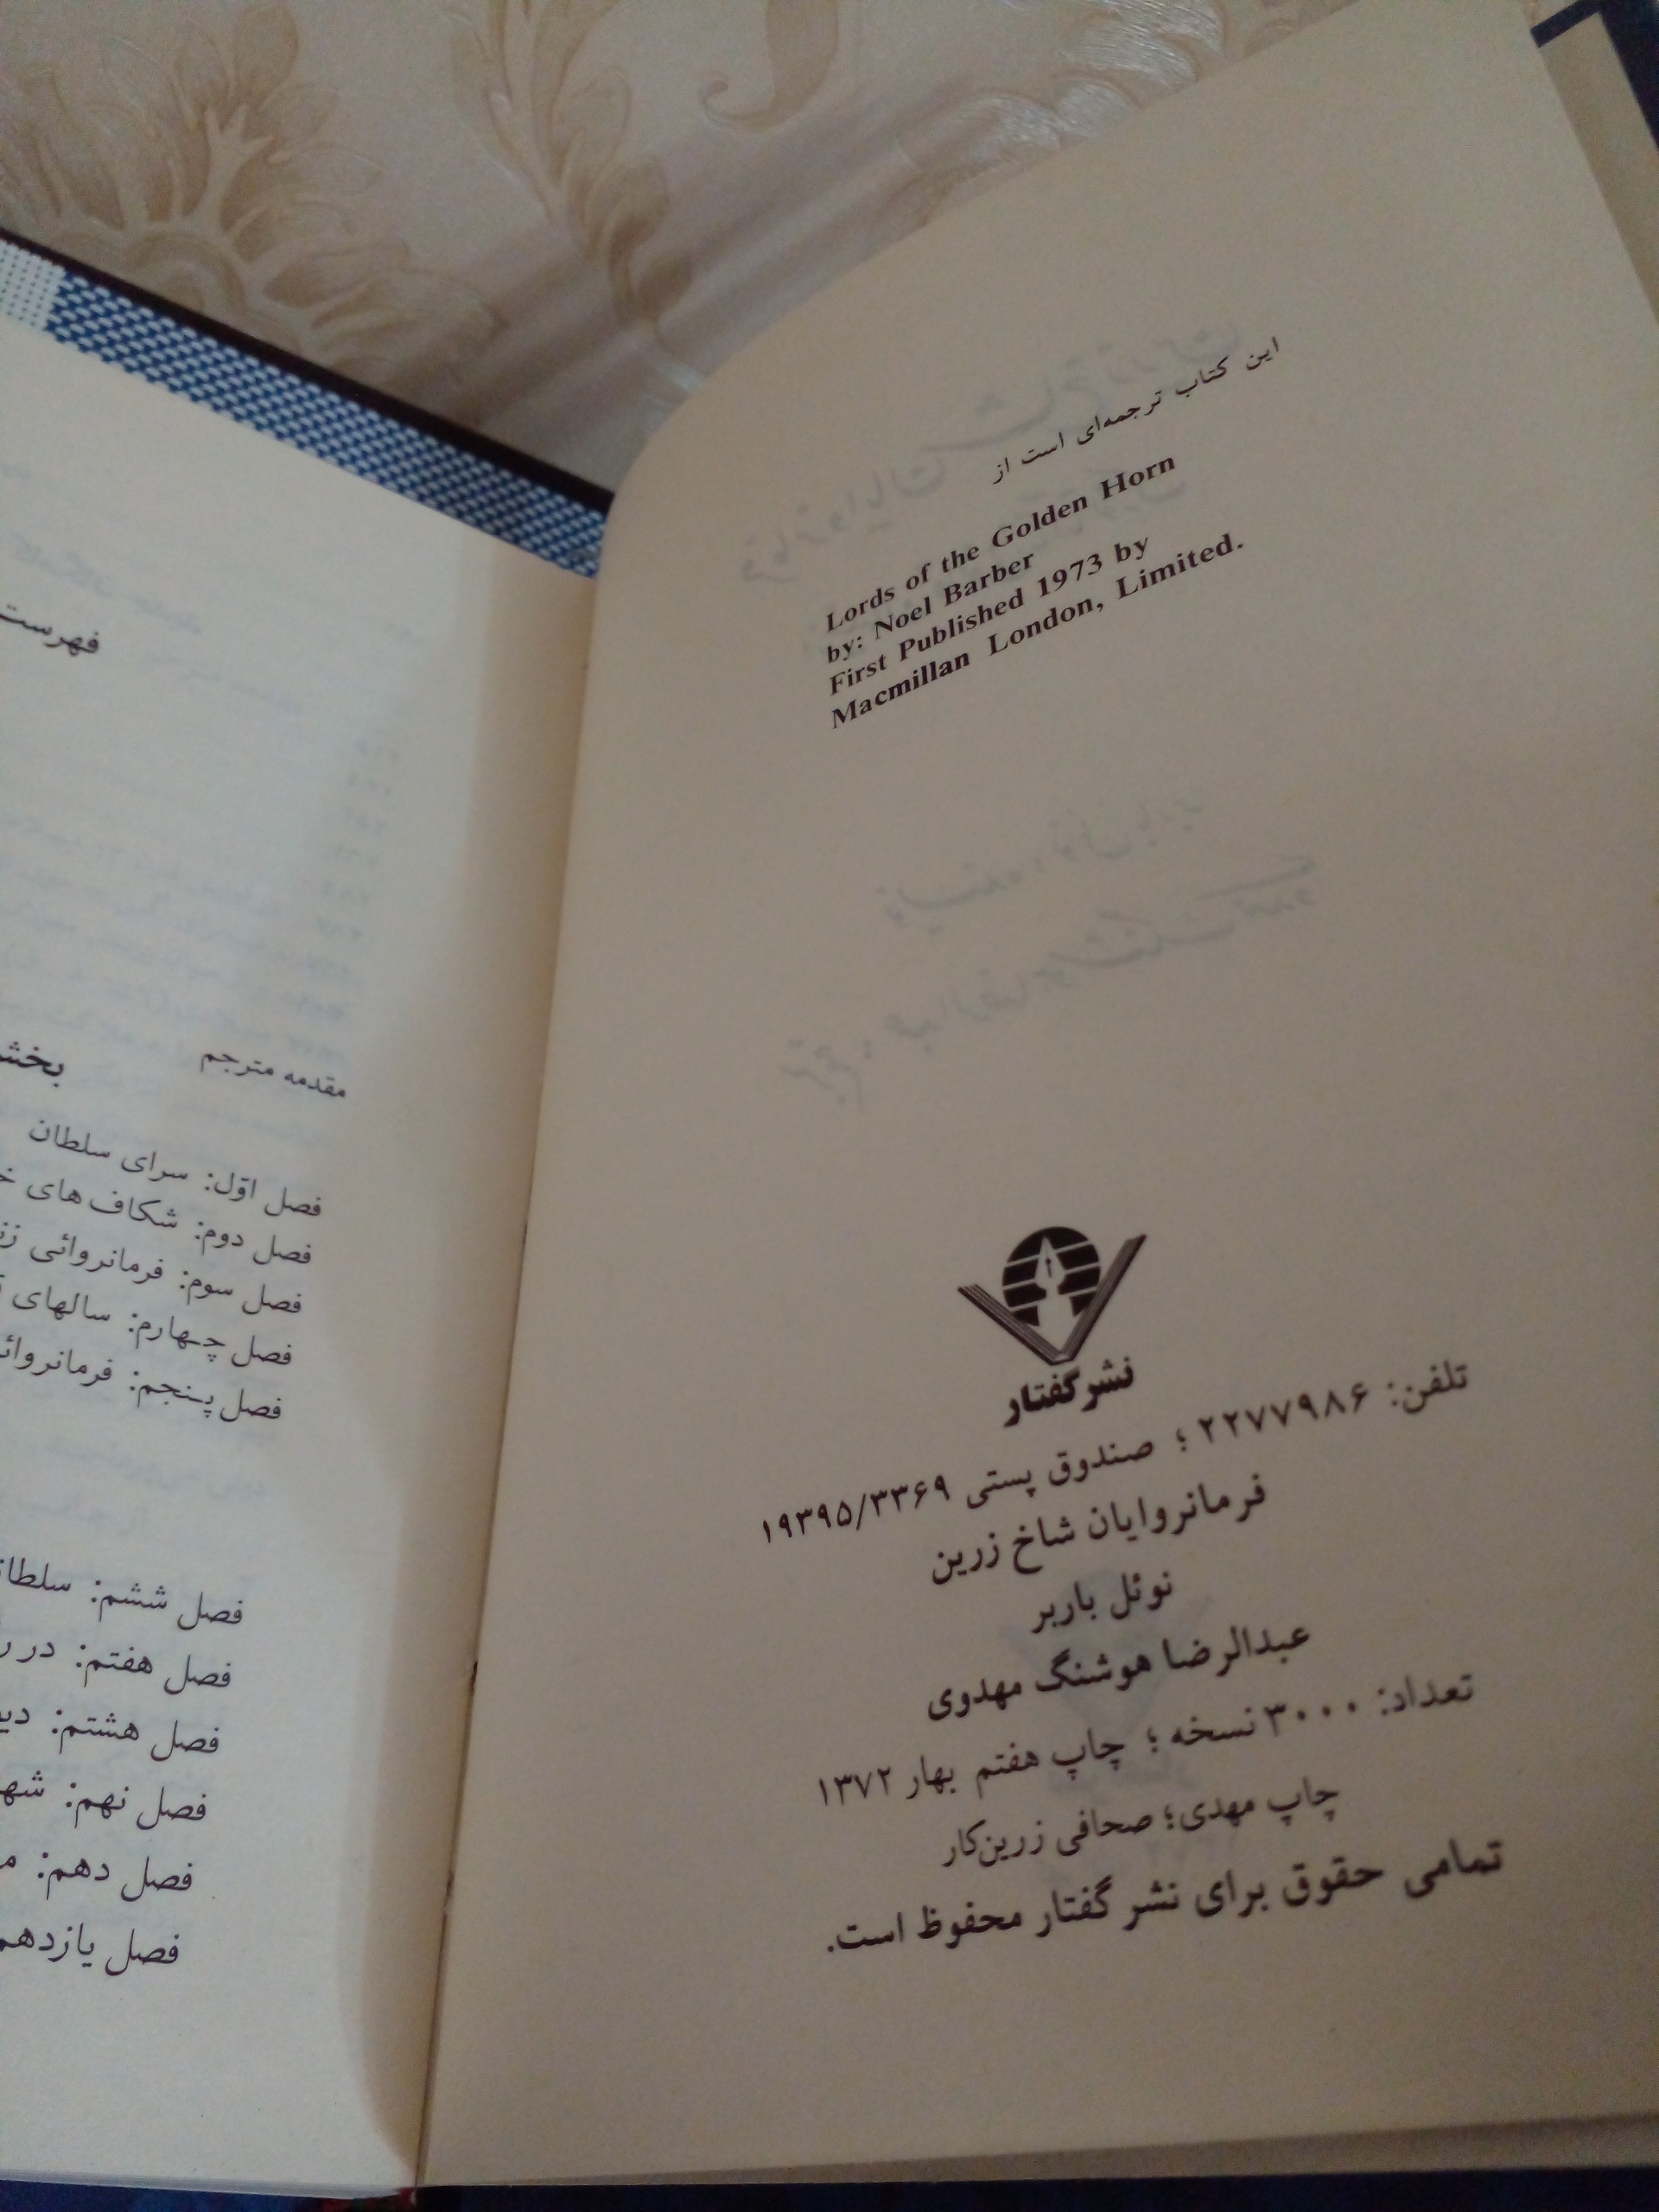 این کتاب ترجمه‌ای است از
Lords of the Golden Horn
by: Noel Barber
First Published 1973 by
Macmillan London, Limited.
نشر گفتار
تلفن: ۲۲۷۷۹۸۶ ؛ صندوق پستی ۱۹۳۹۵/۳۳۶۹
فرمانروایان شاخ زرین
نوئل باربر
عبدالرضا هوشنگ مهدوی
تعداد: ۳۰۰۰ نسخه ؛ چاپ هفتم بهار ۱۳۷۲
چاپ مهدی؛ صحافی زرین‌کار
تمامی حقوق برای نشر گفتار محفوظ است.
فهرست
مقدمه مترجم
فصل اوّل: سرای سلطان
فصل دوم: شکاف های
فصل سوم: فرمانروائی
فصل چهارم: سالهای
فصل پنجم:
فصل ششم:
فصل هفتم: در
فصل هشتم:
فصل نهم:
فصل دهم:
فصل یازدهم